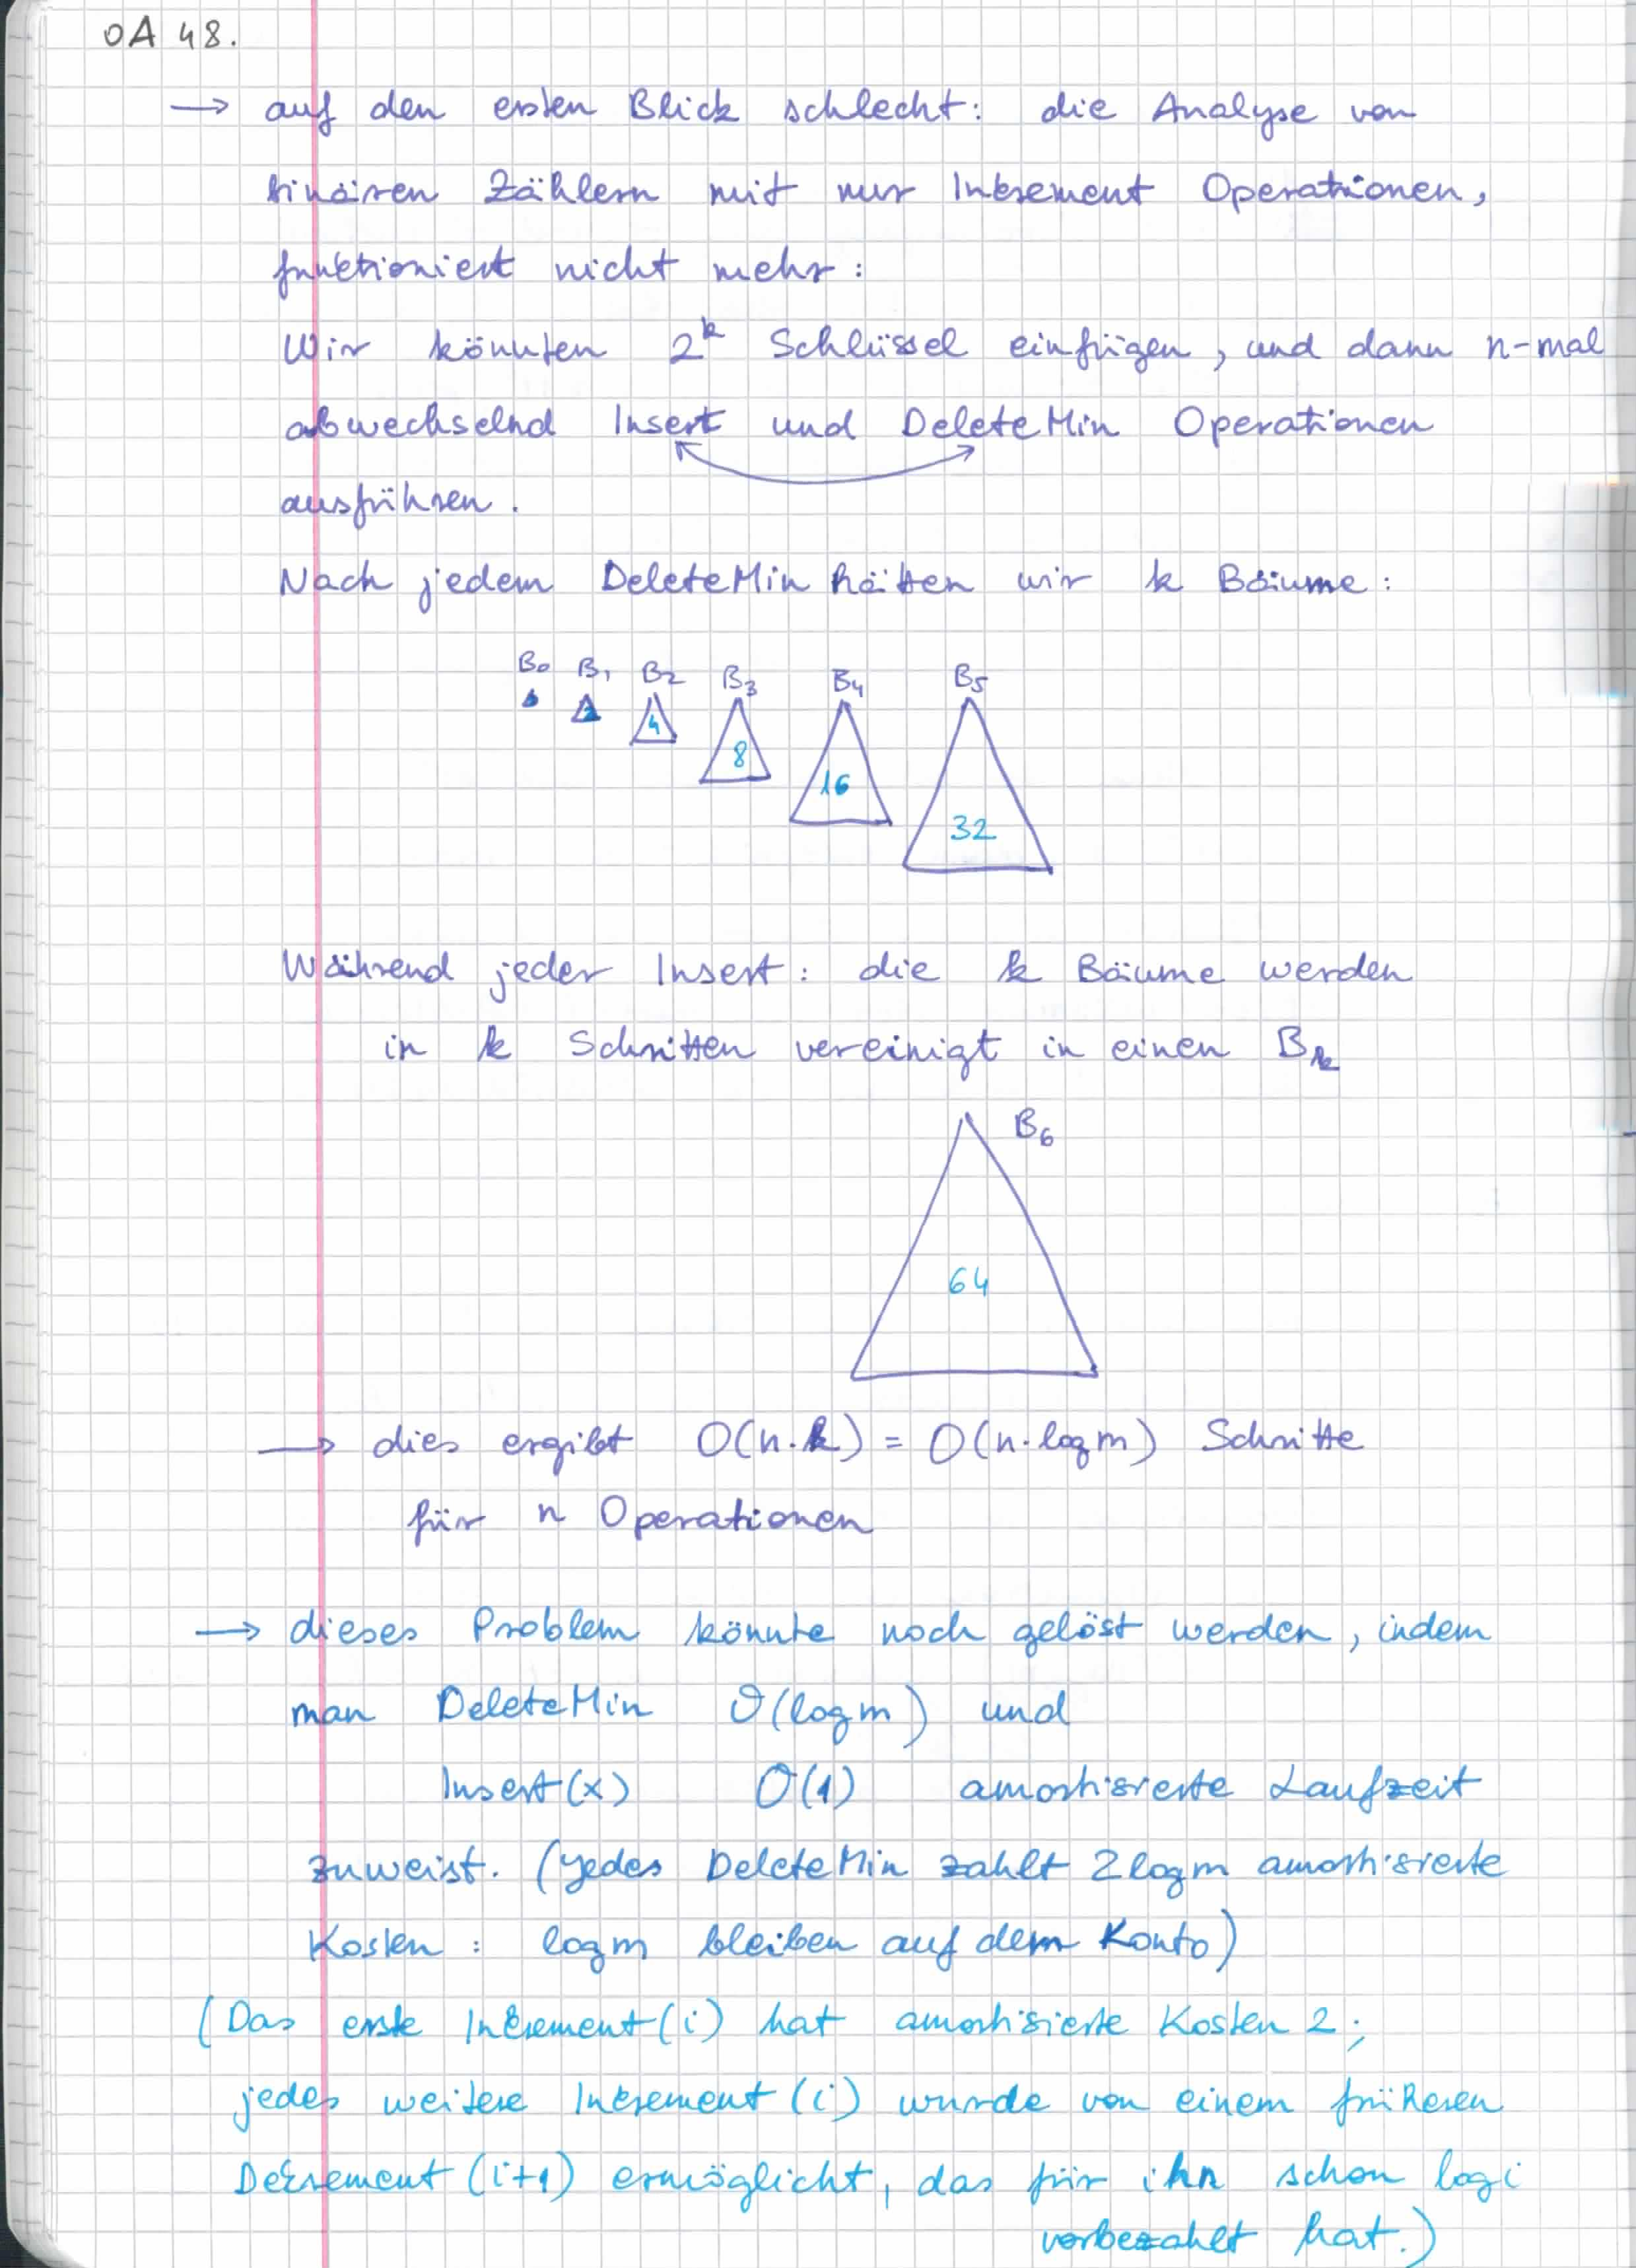 OA 48.
→ auf den ersten Blick schlecht: die Analyse von
binären Zählern mit nur Inkrement Operationen,
funktioniert nicht mehr:
Wir könnten 2^k Schlüssel einfügen, und dann n-mal
abwechselnd Insert und DeleteMin Operationen
ausführen.
Nach jedem DeleteMin hätten wir k Bäume:
B0 B1 B2 B3 B4 B5
2 4 8 16 32
Während jeder Insert: die k Bäume werden
in k Schritten vereinigt in einen Bk
B6
64
→ dies ergibt O(n·k) = O(n·log m) Schritte
für n Operationen
→ dieses Problem könnte noch gelöst werden, indem
man DeleteMin O(log m) und
Insert(x) O(1) amortisierte Laufzeit
zuweist. (jedes DeleteMin zahlt 2 log m amortisierte
Kosten: log m bleiben auf dem Konto)
(Das erste Inkrement(i) hat amortisierte Kosten 2;
jedes weitere Inkrement(i) wurde von einem früheren
Dekrement(i+1) ermöglicht, das für ihn schon log i
vorbezahlt hat.)